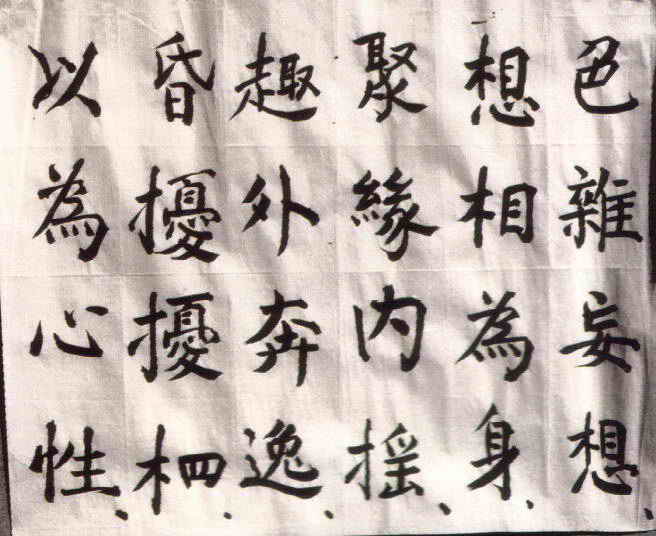 色雜妄想、
想相為身、
聚緣内搖、
趣外奔逸、
昏擾擾柶、
以為心性、